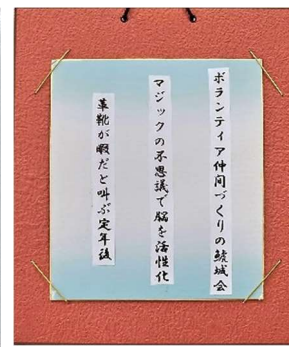 ボランティア仲間づくりの鯱城会
マジックの不思議で脳を活性化
革靴が暇だと叫ぶ定年後